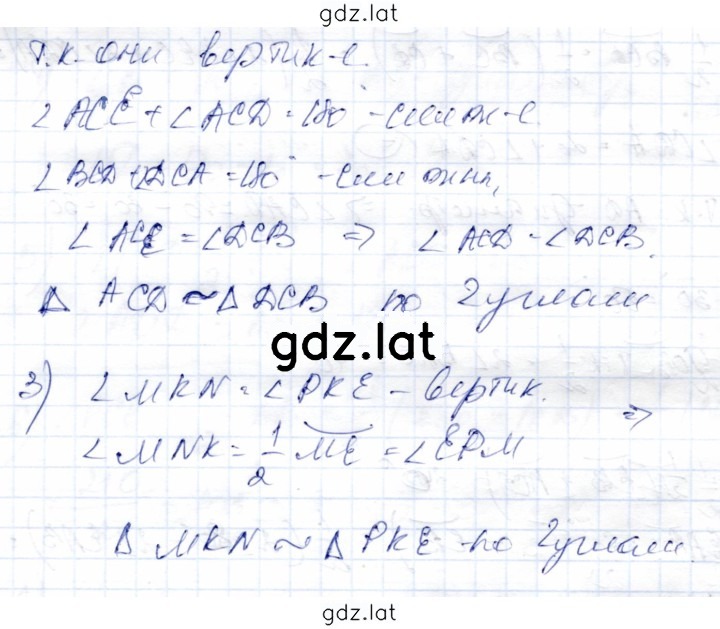 gdz.lat
т.к. они вертик-е.
∠ACE + ∠ACD = 180° - смеж-е.
∠BCD + ∠DCA = 180° - смежны,
∠ACE = ∠DCB ⇒ ∠ACD = ∠DCB.
Δ ACD ~ Δ DCB по 2 углам
gdz.lat
3) ∠MKN = ∠PKE - вертик. ⇒
∠MNK = 1/2 ME = ∠EPM
Δ MKN ~ Δ PKE - по 2 углам.
gdz.lat